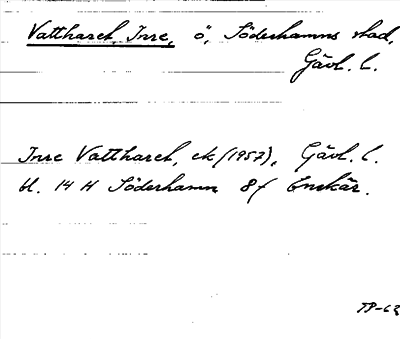 Vattharet, Inre, ö, Söderhamns stad,
Gävl. l.
Inre Vattharet, ek (1957), Gävl. l.
bl. 14 H Söderhamn 8 f Enskär.
TP-63